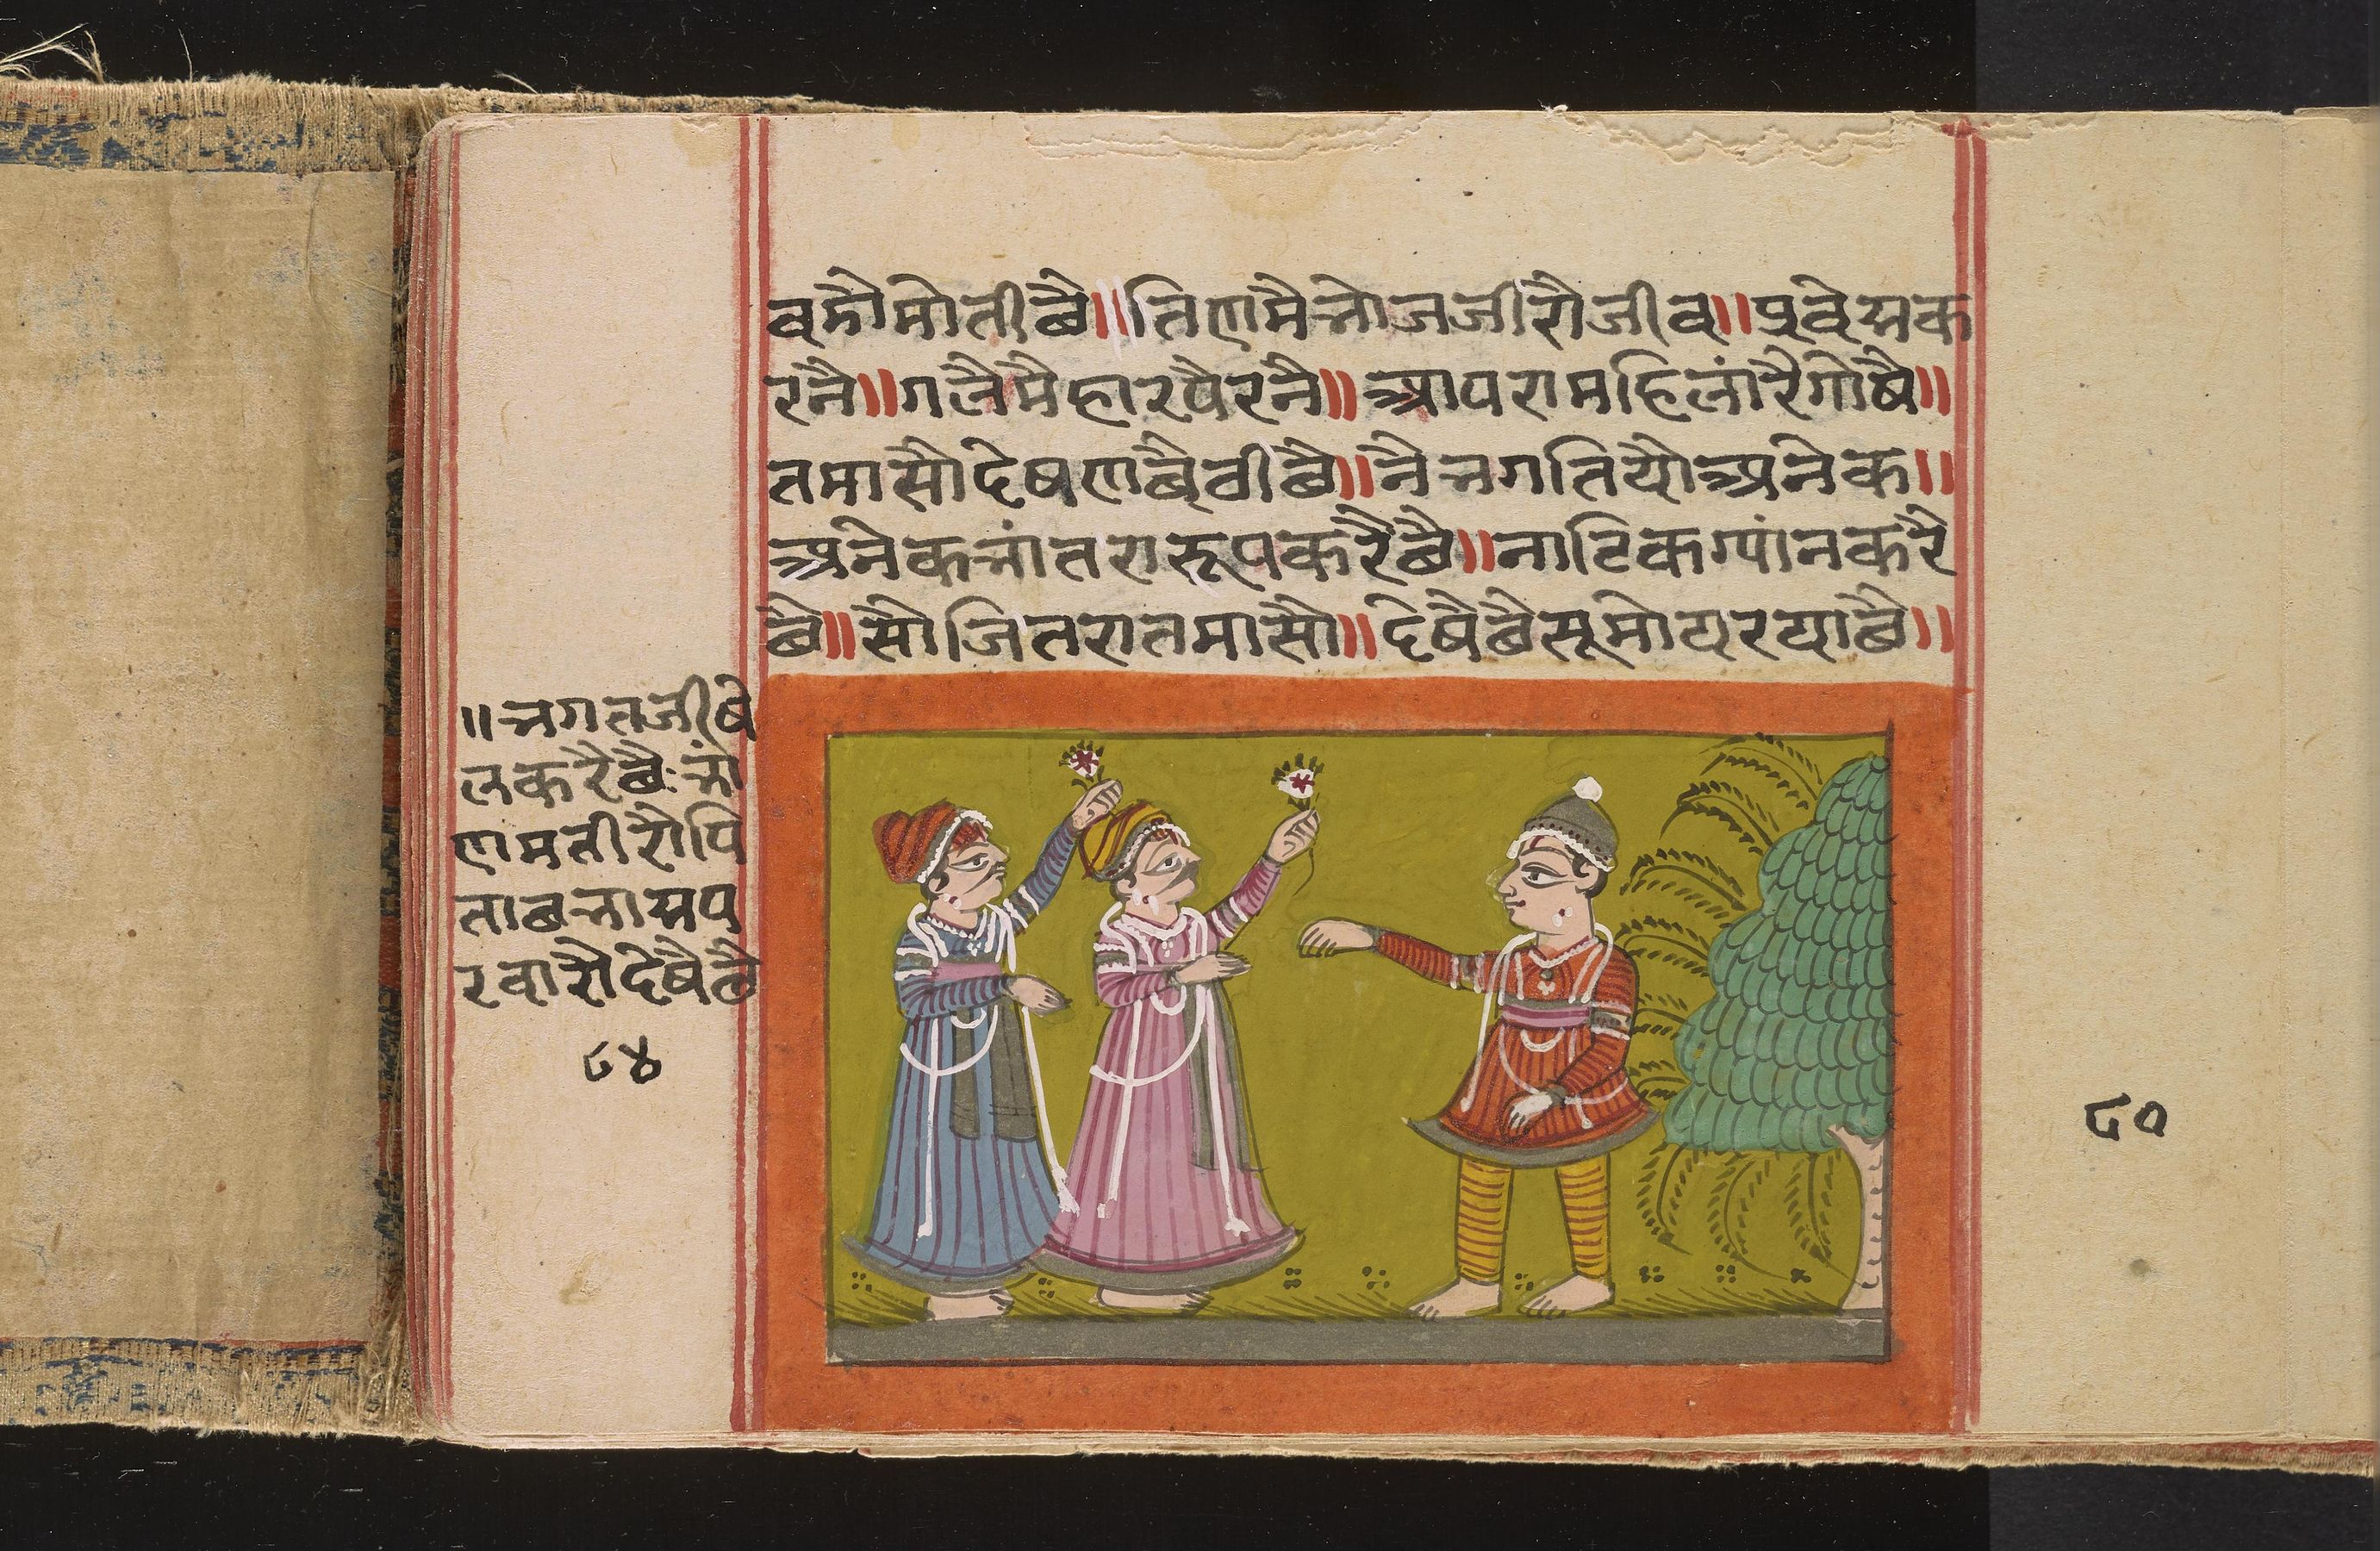 वमैमोतीछै॥तिणमैभोजजीरौजीव॥प्रवेसक
रनै॥गलैमैहारपैरनै॥आपरामहिलांरैगोषै॥
तमासौदेषणबैठीछै॥नैभगतियौअनेक॥
अनेकभांतरारूपकरैछै॥नाटिकग्यांनकरै
छै॥सौजितरातमासौ॥देषैछैसूमोयरयाछै॥
॥भगतजीषे
लकरैछै:भां
णमतीरौपि
ताछभासप
रवारौदेषैछै
८४
८०